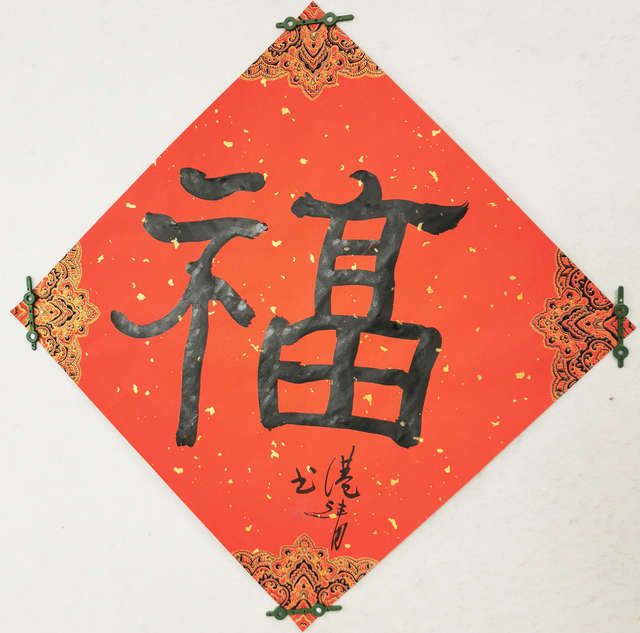 福
港清
书